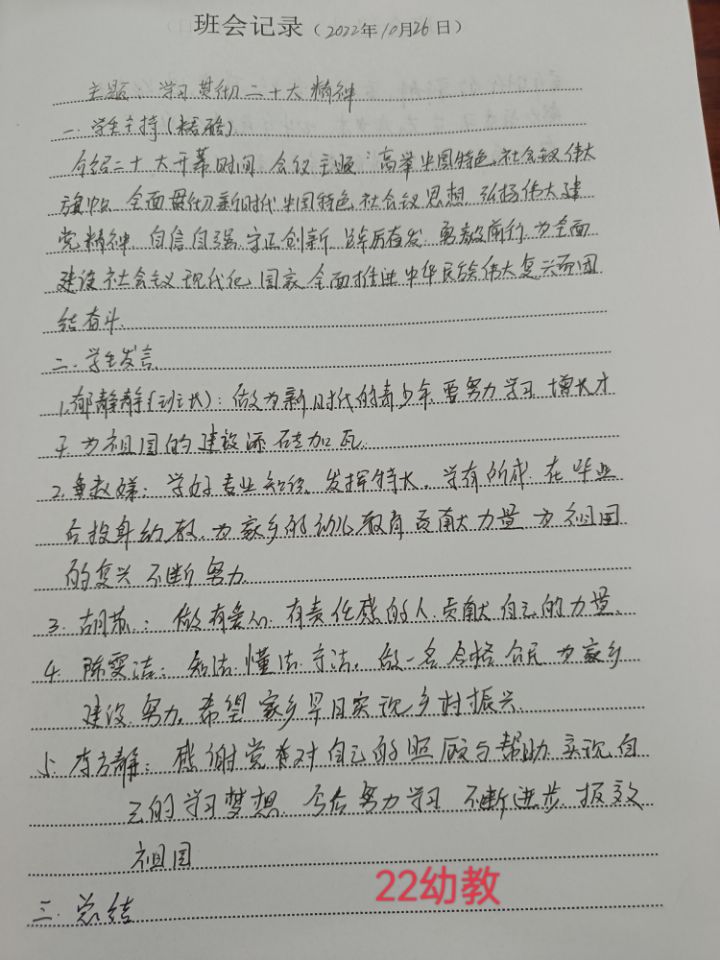 班会记录（2022年10月26日）
主题：学习贯彻二十大精神
一.学生主持（
介绍二十大开幕时间 会议主题：高举中国特色 社会主义伟大
旗帜 全面贯彻新时代中国特色社会主义思想 弘扬伟大建
党精神 自信自强 守正创新 踔厉奋发 勇毅前行 为全面
建设社会主义现代化国家 全面推进中华民族伟大复兴而团
结奋斗.
二.学生发言
1.郁静静（班长）：做为新时代的青少年要努力学习 增长才
干 为祖国的建设添砖加瓦.
2.鲁赵嫌：学好专业知识 发挥特长. 学有所成 在毕业
后投身幼教. 为家乡的幼儿教育贡献力量 为祖国
的复兴不断努力.
3.胡 ：做有爱心.有责任感的人.贡献自己的力量.
4.陈雯洁：知法.懂法.守法. 做一名合格公民 为家乡
建设努力.希望家乡早日实现乡村振兴.
5.李方静：感谢党 对自己的照顾与帮助 实现自
己的学习梦想.今后努力学习 不断进步 报效
祖国
三.总结
22幼教